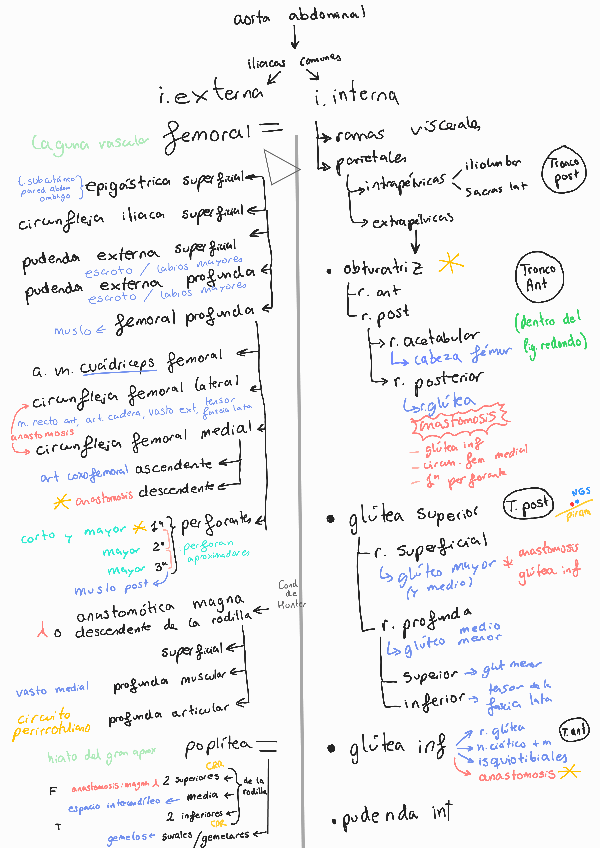 aorta abdominal
iliacas comunes
i. externa
i. interna
Laguna vascular
femoral =
t. subcutáneo
pared abdom
ombligo
epigástrica superficial
circunfleja iliaca superficial
pudenda externa superficial
escroto / labios mayores
pudenda externa profunda
escroto / labios mayores
muslo ← femoral profunda
a. m. cuádriceps femoral
circunfleja femoral lateral
m. recto ant, art. cadera, vasto ext, tensor
fascia lata
anastomosis
circunfleja femoral medial
art coxofemoral ascendente
anastomosis descendente
corto y mayor 1ª
mayor 2ª
mayor 3ª
perforantes
perforan
aproximadores
muslo post
anastomótica magna
o descendente de la rodilla
Cond
de
Hunter
superficial
vasto medial profunda muscular
circuito
perirrotuliano
profunda articular
hiato del gran aprox
poplítea =
CPR
F anastomosis: magna λ 2 superiores
espacio intercondíleo ← media
T 2 inferiores
CPR
de la
rodilla
gemelos ← surales / gemelares
ramas viscerales
parietales
intrapélvicas
iliolumbar
sacras lat
Tronco
post
extrapélvicas
• obturatriz
Tronco
Ant
r. ant
r. post
r. acetabular
cabeza fémur
(dentro del
lig. redondo)
r. posterior
r. glútea
anastomosis
- glútea inf
- circun. fem medial
- 1ª perforante
• glútea superior
T. post
NGS
piram
r. superficial
glúteo mayor
(y medio)
* anastomosis
glútea inf
r. profunda
glúteo medio
menor
superior → glut menor
inferior → tensor de la
fascia lata
• glútea inf
T. ant
r. glútea
n. ciático + m
isquiotibiales
anastomosis
• pudenda int